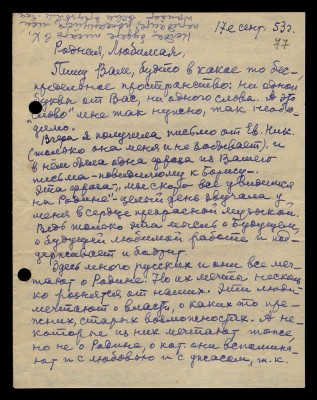 17е сент. 53 г.
77
Родная, Любимая,
Пишу Вам, будто в какое то бес-
предельное пространство: ни одной
буквы от Вас, ни одного слова. А это
"слово" мне так нужно, так необхо-
димо.
Вчера я получила письмо от Ев. Ник.
(только она меня и не забывает), и
в нём была одна фраза из Вашего
письма - повидимому к Борису.-
Эта фраза "мы скоро все увидимся
на Родине" - целый день звучала у
меня в сердце прекрасной музыкой.
Ведь только эта мысль о будущем,
о будущей любимой работе и под-
держивает и бодрит.
Здесь много русских и они все меч-
тают о Родине! Но их мечты несколь-
ко разнятся от наших. Эти люди
мечтают о власти, о каких то пре-
жних, старых возможностях. А не-
которые из них мечтают тоже,
но не о Родине, о кот. они вспомина-
ют и с любовью и с ужасом, т.к.